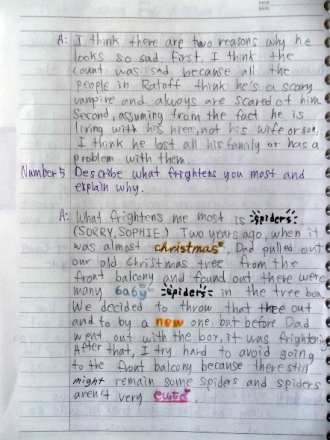 A: I think there are two reasons why he
looks so sad. first, I think the
count was sad because all the
people in Ratoff think he's a scary
vampire and always are scared of him
Second, assuming from the fact he is
living with his niece, not his wife or son,
I think he lost all his family or has a
problem with them.
Number 5 Describe what frightens you most and
explain why.
A: What frightens me most is spiders
(SORRY, SOPHIE.) Two years ago, when it
was almost christmas, Dad pulled out
our old Christmas tree from the
front balcony and found out there were
many baby spiders in the tree box
We decided to throw that tree out
and to by a new one, but before Dad
went out with the box, it was frightening
After that, I try hard to avoid going
to the front balcony because there still
might remain some spiders and spiders
aren't very cute.